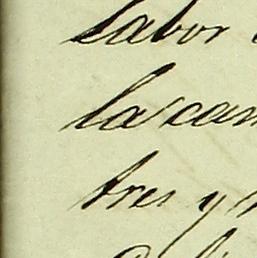 Labor
la can
tres y